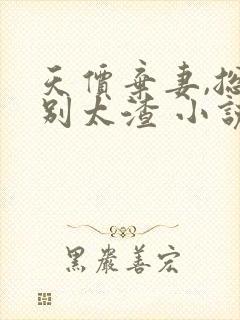 天價棄妻,總
別太渣 小說
黑巖善宏